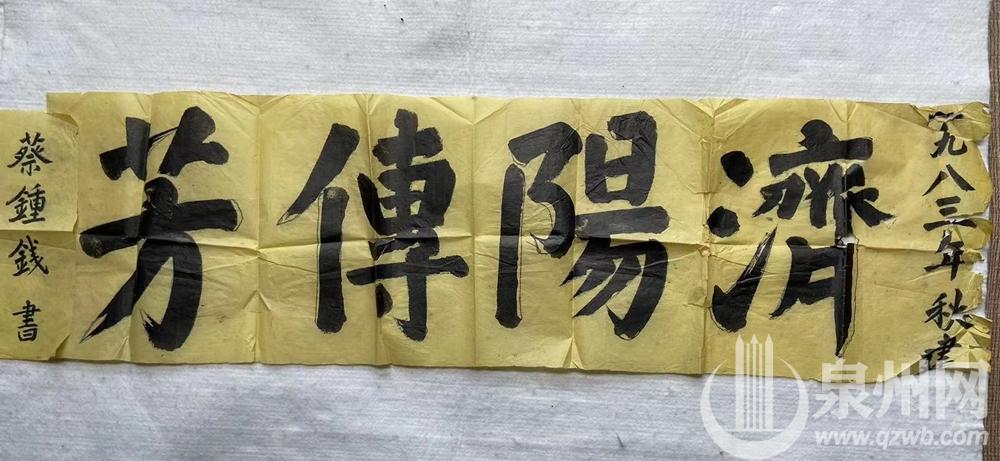 一九八三年秋建
濟陽傳芳
蔡鍾錢書
泉州网
www.qzwb.com